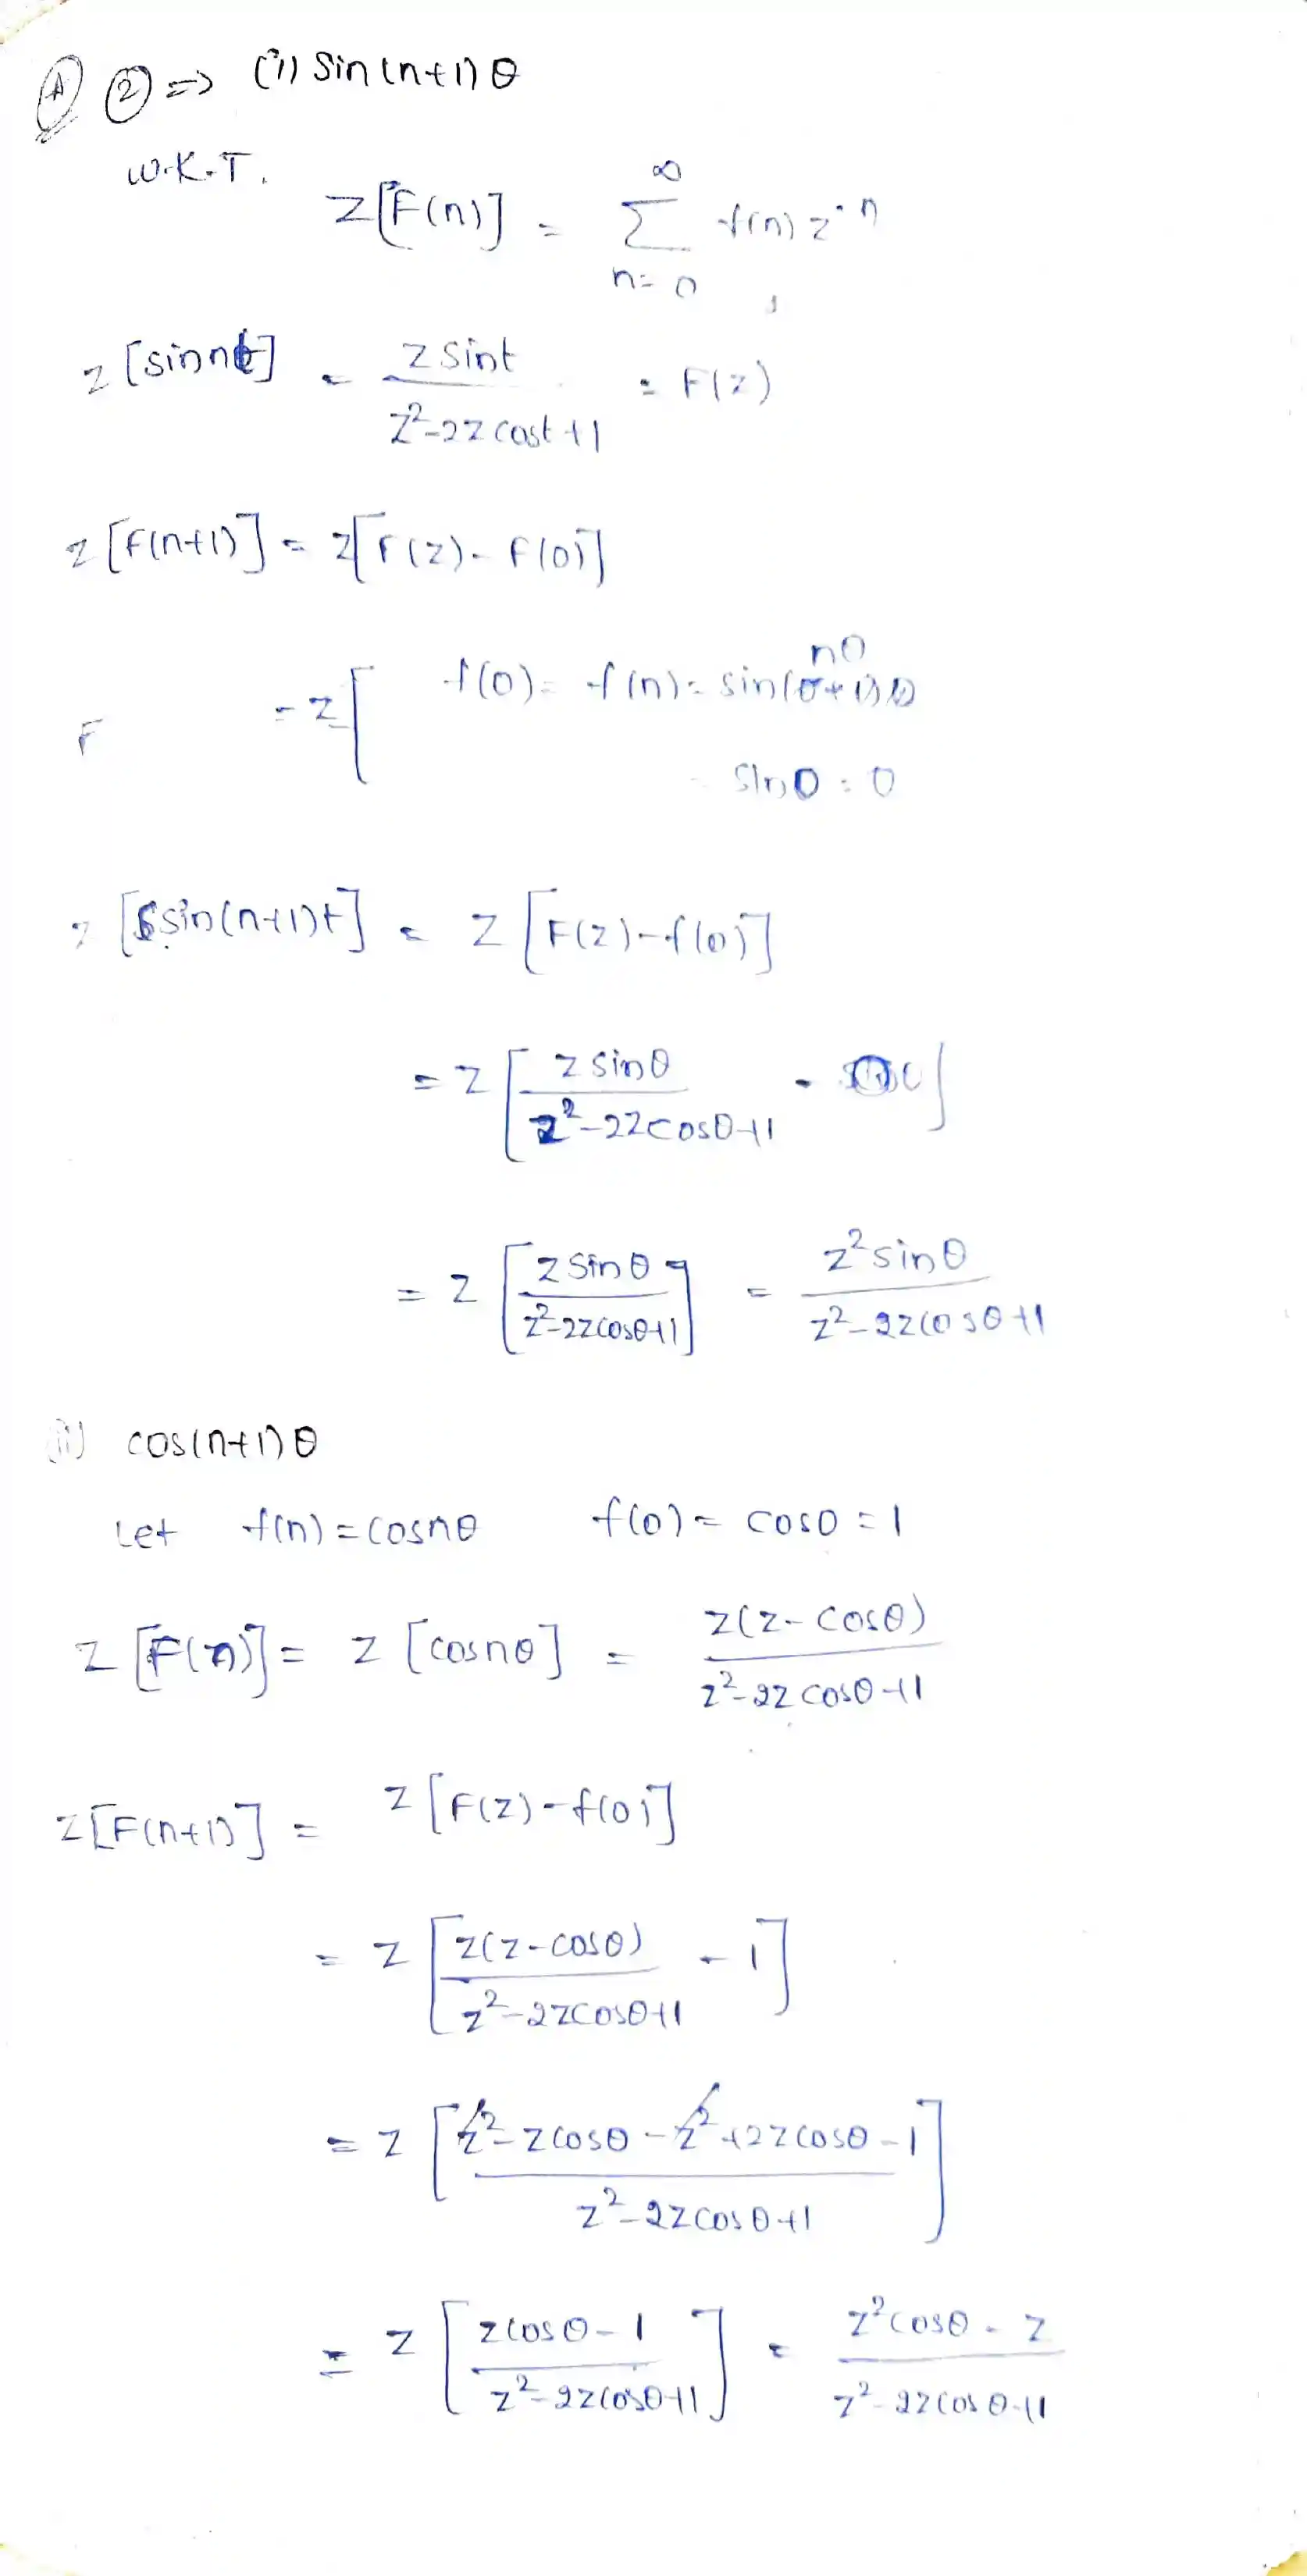 A ② => (i) Sin(n+1)θ
W.K.T.
Z[F(n)] = ∞ Σ n=0 f(n) z^-n
z [sinnt] = z sint / z²-2z cost+1 = F(z)
z [F(n+1)] = z[F(z) - F(0)]
= z[ f(0) = f(n) = sin(0+1)θ nθ
F
sin0 = 0
z [sin(n+1)t] = z [F(z) - f(0)]
= z [ z sinθ / z²-2zcosθ+1 - 0 ]
= z [ z sinθ / z²-2zcosθ+1 ] = z² sinθ / z²-2zcosθ+1
(ii) cos(n+1)θ
Let f(n) = cosnθ f(0) = cos0 = 1
Z [F(n)] = z [cosnθ] = z(z - cosθ) / z²-2z cosθ+1
Z[F(n+1)] = z [F(z) - f(0)]
= z [ z(z - cosθ) / z²-2zcosθ+1 - 1 ]
= z [ z² - z cosθ - z² + 2z cosθ - 1 / z²-2z cosθ+1 ]
= z [ z cosθ - 1 / z²-2zcosθ+1 ] = z² cosθ - z / z²-2z cosθ+1